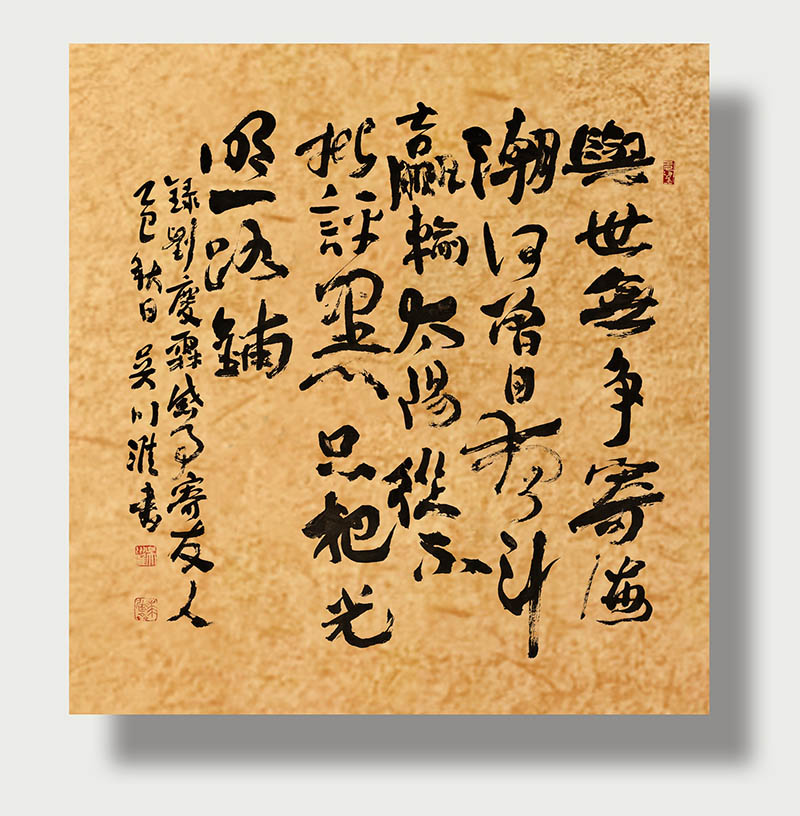 與世無争寄海
潮何曾斗
贏輸太陽從不
批評黑只把光
明一路鋪
録劉慶霖感事寄友人
乙巳秋日吴川淮書